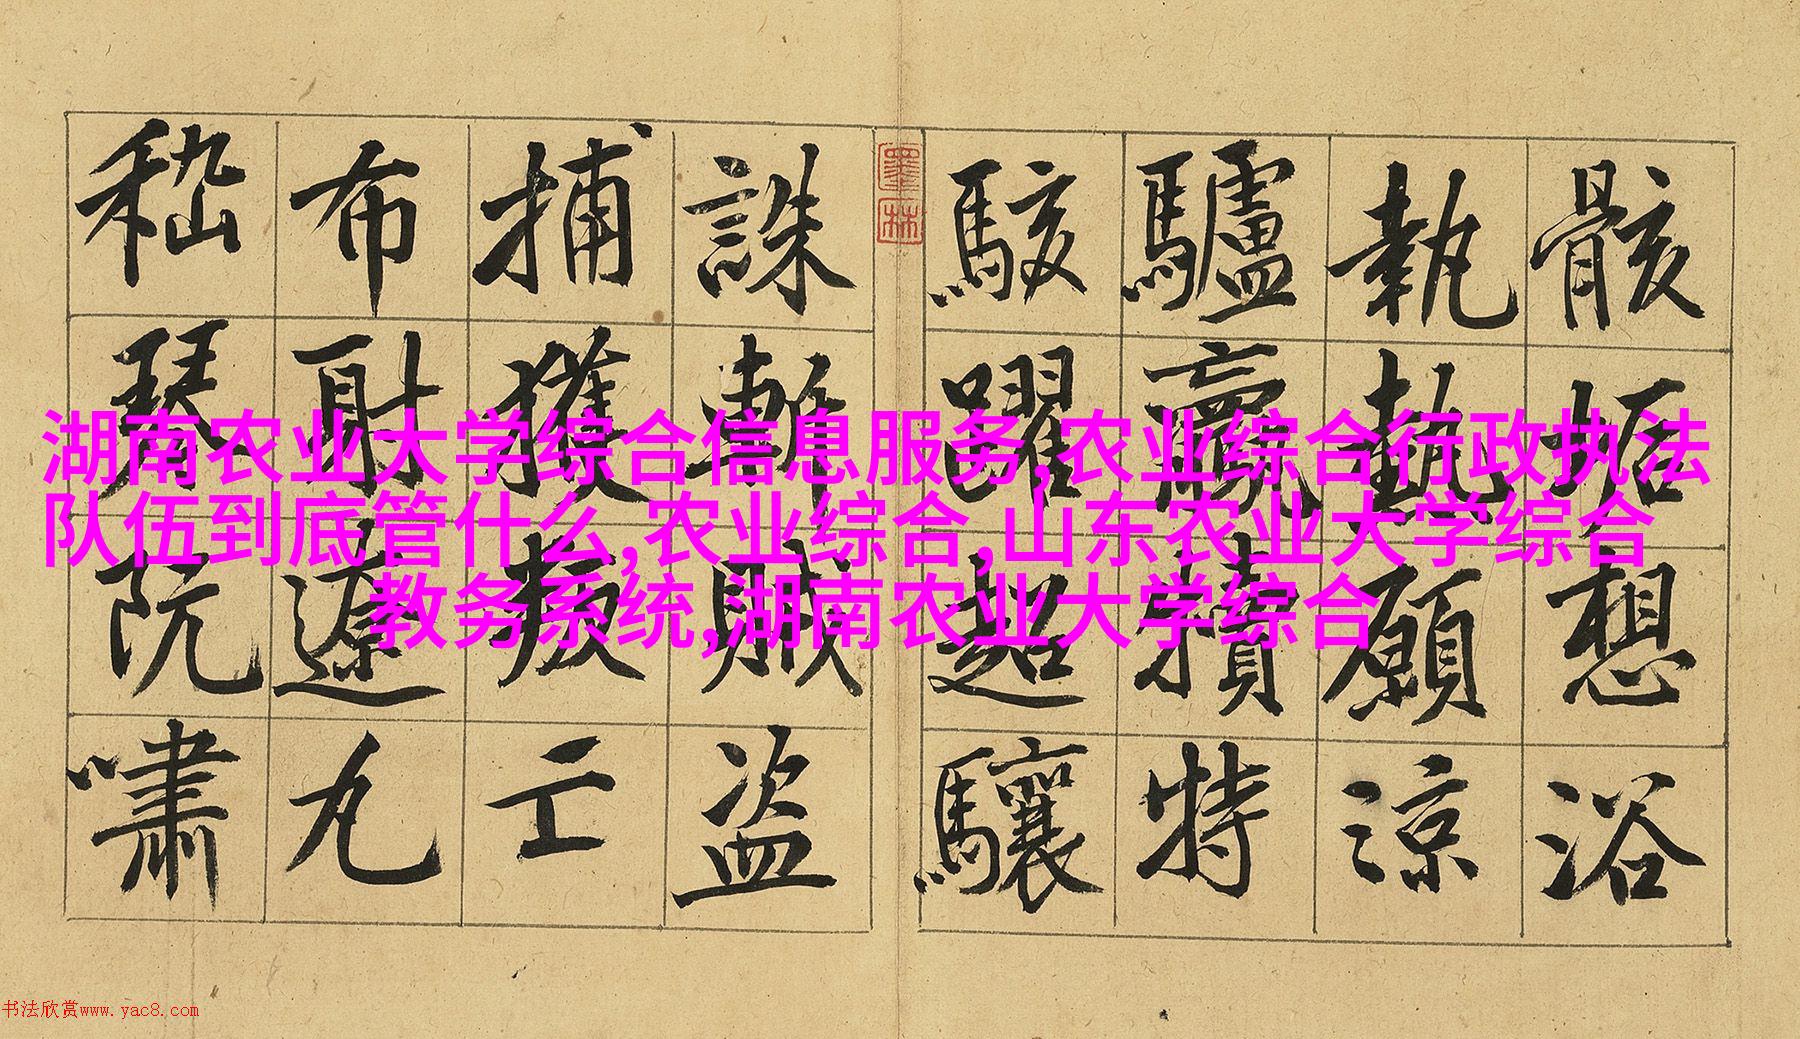 骸垢想浴
執熱願涼
驢驘犢特
駭躍超驤
墨林
誅斬賊盜
捕獲叛亡
布射遼丸
嵇琴阮嘯
湖南农业大学综合信息服务,农业综合行政执法
队伍到底管什么,农业综合,山东农业大学综合
教务系统,湖南农业大学综合
书法欣赏www.yac8.com